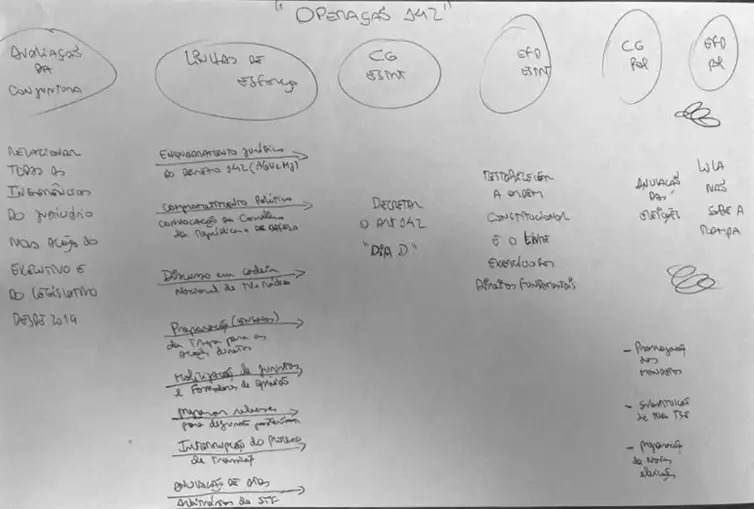 "OPERAÇÃO 142"
AVALIAÇÃO
DA
CONJUNTURA
RELACIONAR
TODAS AS
INTERFERÊNCIAS
DO JUDICIÁRIO
NAS AÇÕES DO
EXECUTIVO E
DO LEGISLATIVO
DESDE 2019
LINHAS DE
ESFORÇO
ENQUADRAMENTO JURÍDICO
DO DECRETO 142 (AGU e MJ)
COMPROMETIMENTO POLÍTICO
CONVOCAÇÃO do Conselho
da República e DE DEFESA
Discurso em cadeia
Nacional de TV e Rádio
Preparação
da tropa para as
ações diretas
Mobilização de juristas
e Formadores de opinião
para
Interrupção do Processo
de transição
ANULAÇÃO DE Atos
Arbitrários do STF
CG
ESTRT
DECRETAR
O ART 142
"DIA D"
EFD
ESTRT
RESTABELECER
A ORDEM
CONSTITUCIONAL
E O LIVRE
EXERCÍCIO DOS
DIREITOS FUNDAMENTAIS
CG
POL
ANULAÇÃO
DAS
ELEIÇÕES
- Prorrogação
dos
MANDATOS
- SUBSTITUIÇÃO
de TSE
- preparação
de Novas
eleições
EFD
POL
LULA
NÃO
SOBE A
RAMPA